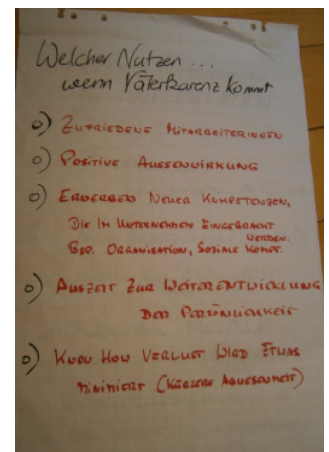 Welcher Nutzen...
wenn Väterkarenz kommt
o) Zufriedene MitarbeiterInnen
o) Positive Aussenwirkung
o) Erwerben Neuer Kompetenzen,
Die Im Unternehmen Eingebracht
werden.
Bsp. Organisation, Soziale Komp.
o) Auszeit Zur Weiterentwicklung
Der Persönlichkeit
o) Know How Verlust Wird Etwas
minimiert (Kürzere Abwesenheit)